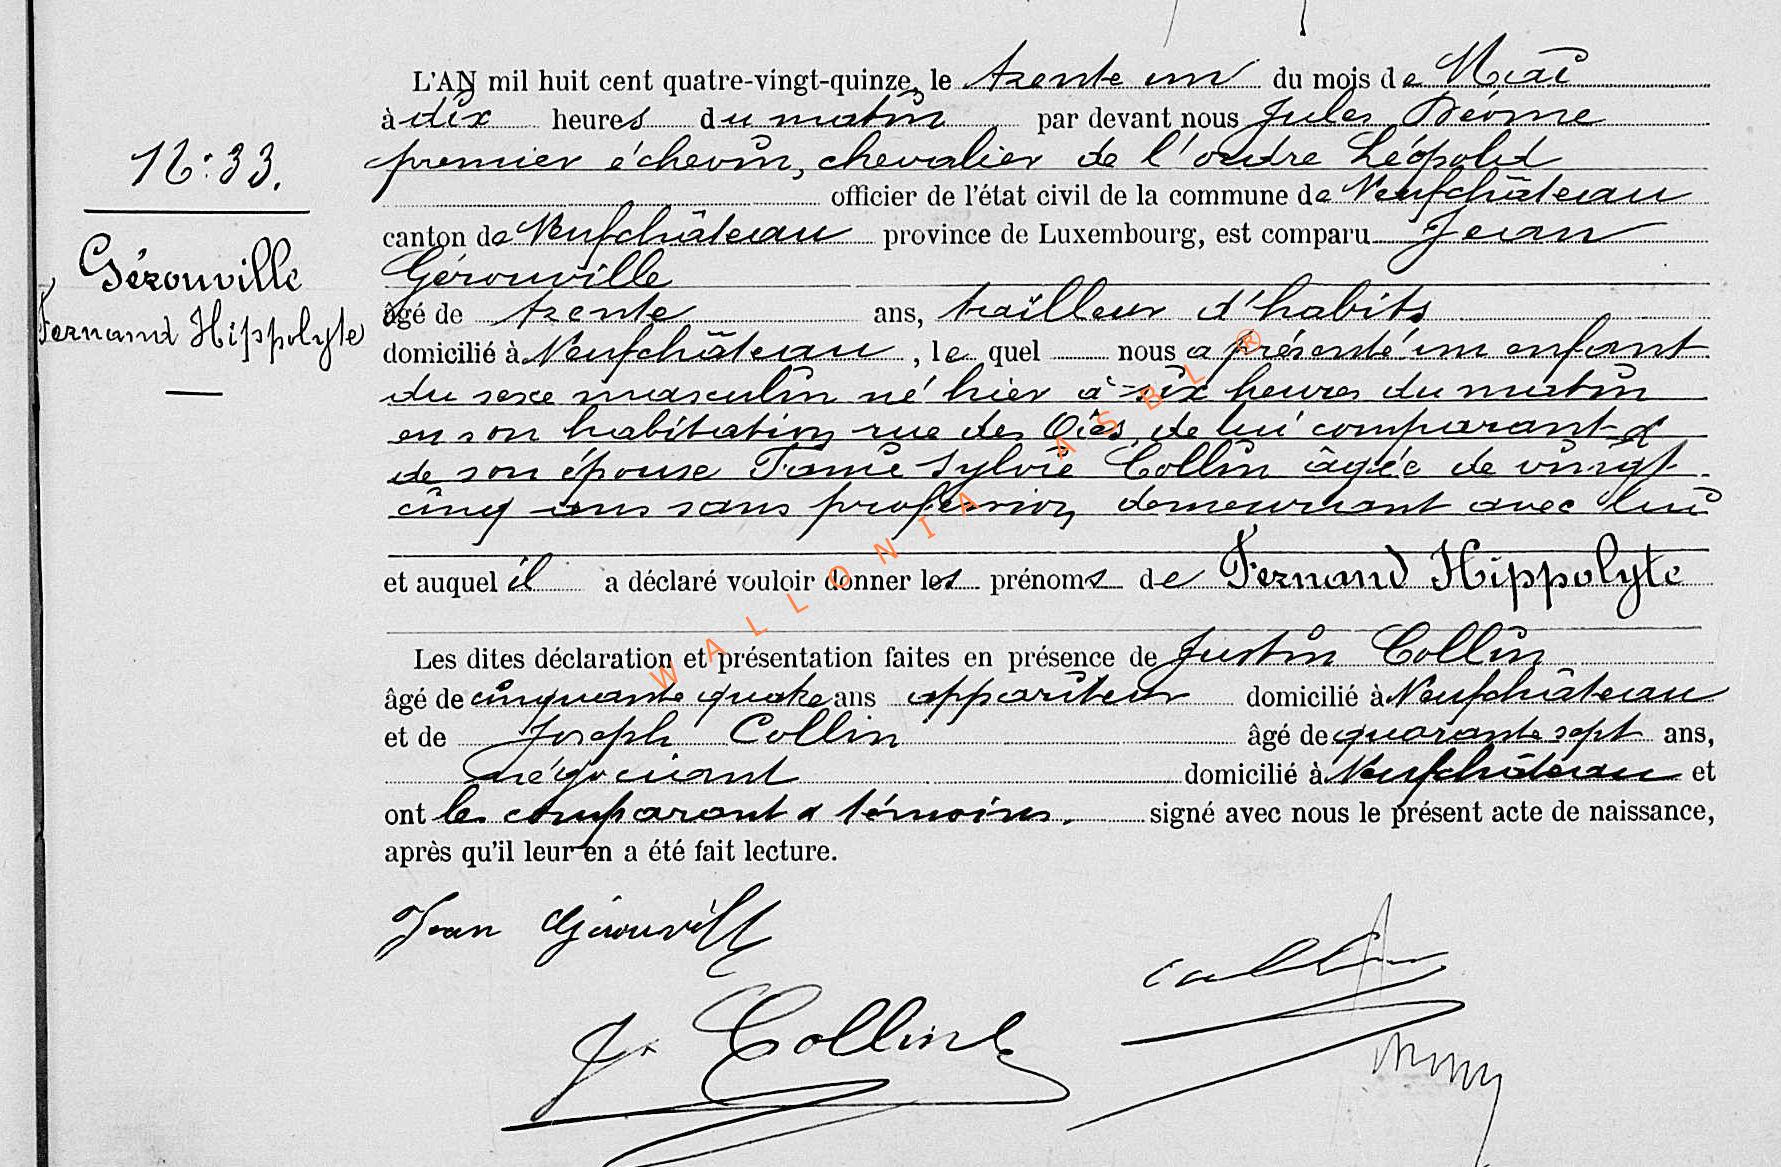 N° 33.
Gérouville
Fernand Hippolyte
L'AN mil huit cent quatre-vingt-quinze, le trente un du mois de Mai
à dix heures du matin par devant nous Jules
premier échevin, chevalier de l'ordre Léopold
officier de l'état civil de la commune de Neufchâteau
canton de Neufchâteau province de Luxembourg, est comparu Jean
Gérouville
âgé de trente ans, tailleur d'habits
domicilié à Neufchâteau, le quel nous a présenté un enfant
du sexe masculin né hier à six heures du matin
en son habitation rue des Oies, de lui comparant &
de son épouse Fanie Sylvie Collin âgée de vingt
cinq ans sans profession, demeurant avec lui
et auquel il a déclaré vouloir donner les prénoms de Fernand Hippolyte
Les dites déclaration et présentation faites en présence de Justin Collin
âgé de cinquante quatre ans appariteur domicilié à Neufchâteau
et de Joseph Collin âgé de quarante sept ans,
négociant domicilié à Neufchâteau et
ont les comparant & témoins. signé avec nous le présent acte de naissance,
après qu'il leur en a été fait lecture.
Jean Gérouville
Collin
J. Collin
WALLONIA ASBL ®